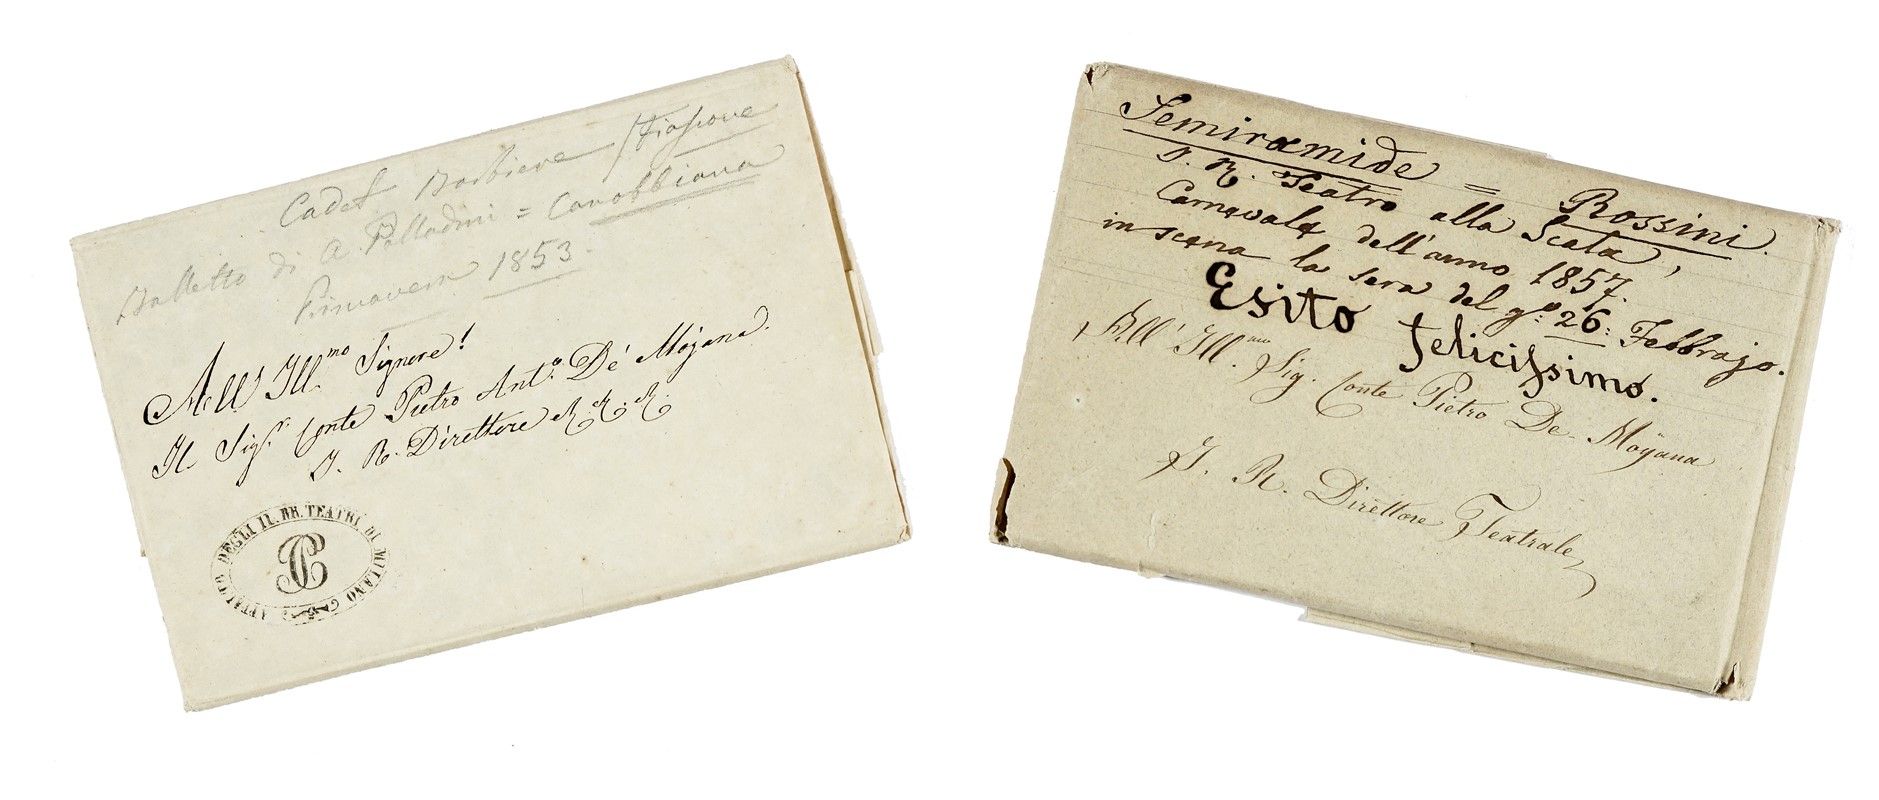 Cadet Barbiere / Fiascone
Balletto di A. Palladini = Canobbiana
Primavera 1853.
All' Ill.mo Signore!
Il Sig.r Conte Pietro Ant.o De' Mojana.
I. R. Direttore &. &. &.
APPALTO DEGLI II. RR. TEATRI DI MILANO
Semiramide = Rossini.
I. R. Teatro alla Scala,
Carnevale dell'anno 1857.
in scena la sera del g.o 26: Febbrajo.
Esito felicissimo.
All' Ill.mo Sig. Conte Pietro De-Moÿana
I. R. Direttore Teatrale